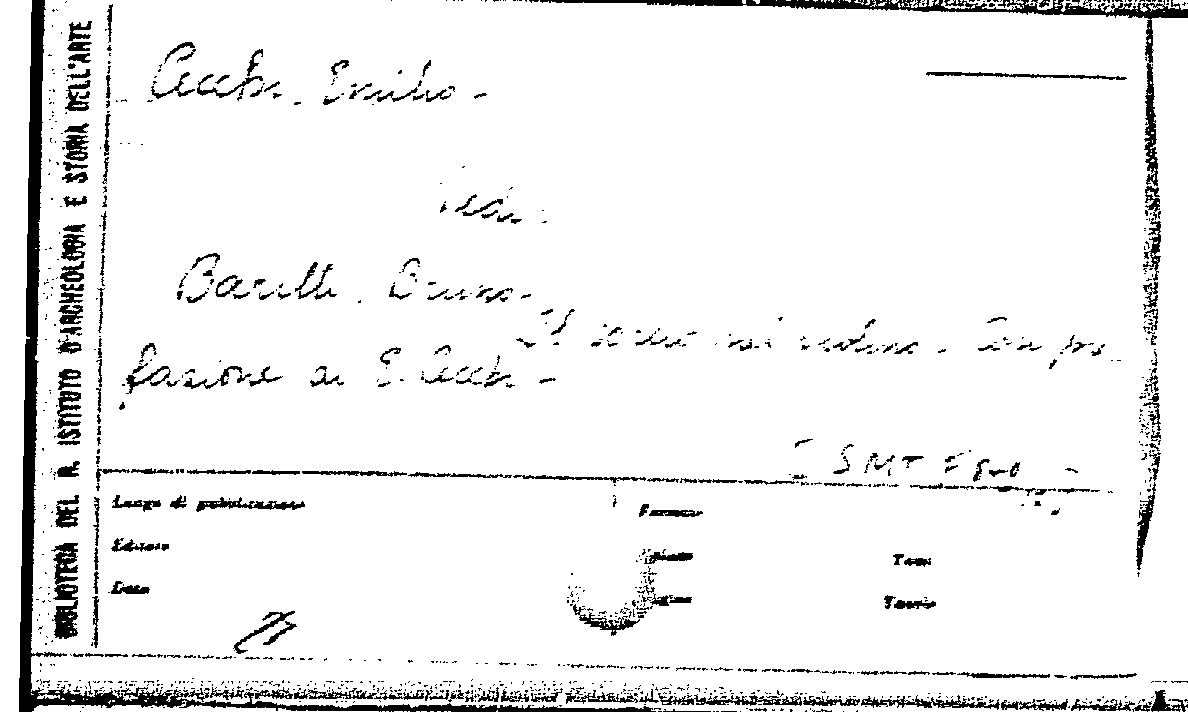 BIBLIOTECA DEL R. ISTITUTO D'ARCHEOLOGIA E STORIA DELL'ARTE
Cecchi, Emilio -
Vedi:
Barilli, Bruno -
Il sorcio nel violino - Con pre-
fazione di E. Cecchi -
Luogo di pubblicazione
Formato
Editore
Volumi
Tomi
Data
Pagine
Tavole